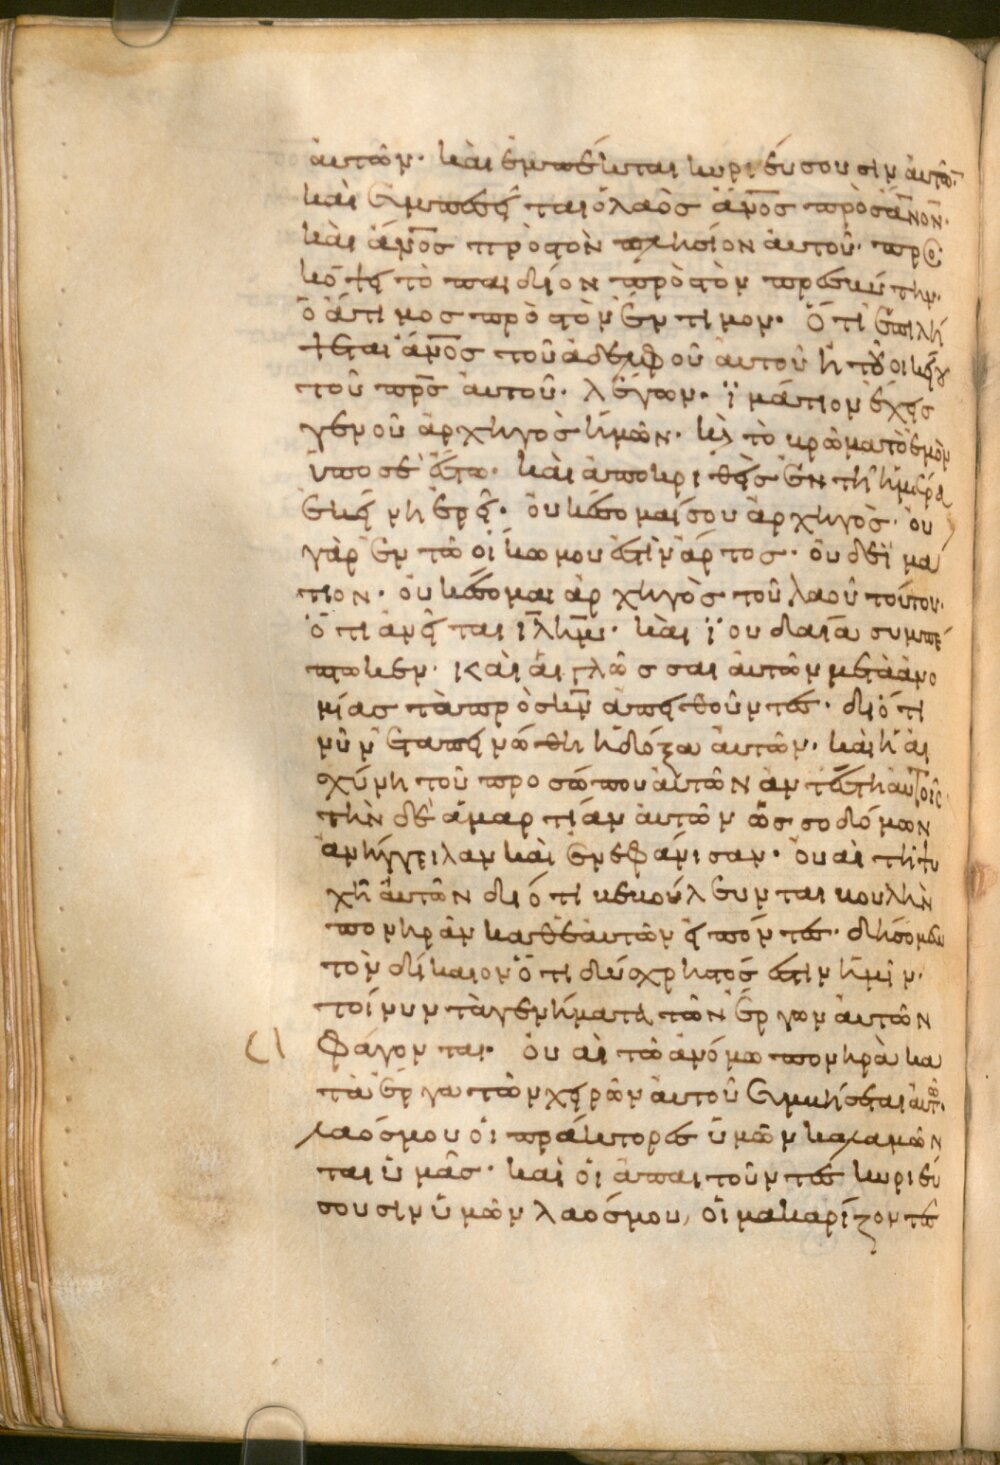 ἀυτῶν· καὶ ἐμπαῖκται κυριεύσουσιν ἀυτῶ̅·
καὶ συμπεσεῖται ὁ λαὸς ἄν̅ο̅ς̅ πρὸς ἄν̅ο̅ν̅·
καὶ ἄν̅ο̅ς̅ πρὸς τὸν πλησίον ἀυτοῦ· προσ
κόψει τὸ παιδίον πρὸς τὸν πρεσβύτην·
ὁ ἄτιμος πρὸς τὸν ἔντιμον· Ὅτι ἐπιλή
ψεται ἄν̅ο̅ς̅ τοῦ ἀδελφοῦ ἀυτοῦ ἢ τοῦ οικείου
τοῦ πρ̅ς̅ ἀυτοῦ· λέγων· ϊμάτιον ἔχεις
γενοῦ ἀρχηγὸς ἡμῶν· κὲ τὸ βρῶμα τὸ ἐμὸν
ὑπὸ σὲ ἔστω· καὶ ἀποκριθεὶς ἐν τῆ ἡμέρα
ἐκείνη ἐρεῖ· ὀυκ ἔσομαί σου ἀρχηγὸς· ὀυ
γὰρ ἐν τῶ οἴκω μου ἐστὶν ἄρτος· ὀυδὲ ϊμά
τιον· ὀυκ ἔσομαι ἀρχηγὸς τοῦ λαοῦ τούτου·
ὅτι ἀνεῖται ϊ̅λ̅η̅μ̅· καὶ ϊουδαία συμπέ
πτωκεν· καὶ ἁι γλῶσσαι ἀυτῶν μετὰ ἀνο
μίας τὰ πρὸς κ̅ν̅ ἀπειθοῦντες· διότι
νῦν ἐταπεινώθη ἡ δόξα ἀυτῶν· καὶ ἡ ἀι
σχύνη τοῦ προσώπου ἀυτῶν ἀντέστη ἀυτοῖς·
τὴν δὲ ἁμαρτίαν ἀυτῶν ὡς σοδόμων
ἀνήγγειλαν καὶ ἐνεφάνισαν· ὀυαὶ τῆ ψυ
χῆ ἀυτῶν διότι βεβούλευνται βουλὴν
πονηρὰν καθ ἑαυτῶν εἰπόντες· δήσωμεν
τὸν δίκαιον ὅτι δύσχρηστός ἐστιν ἡμῖν·
τοίνυν τὰ γενήματα τῶν ἔργων ἀυτῶν
φάγονται· ὀυαὶ τῶ ἀνόμω πονηρὰ κα
τὰ ἔργα τῶν χειρῶν ἀυτοῦ συμβήσεται ἀυτῶ·
λαός μου ὁι πράκτορες ὑμῶν καλαμῶν
ται ὑμᾶς· καὶ ὁι ἀπαιτοῦντες κυριεύ
σουσιν ὑμῶν λαός μου, ὁι μακαρίζοντες